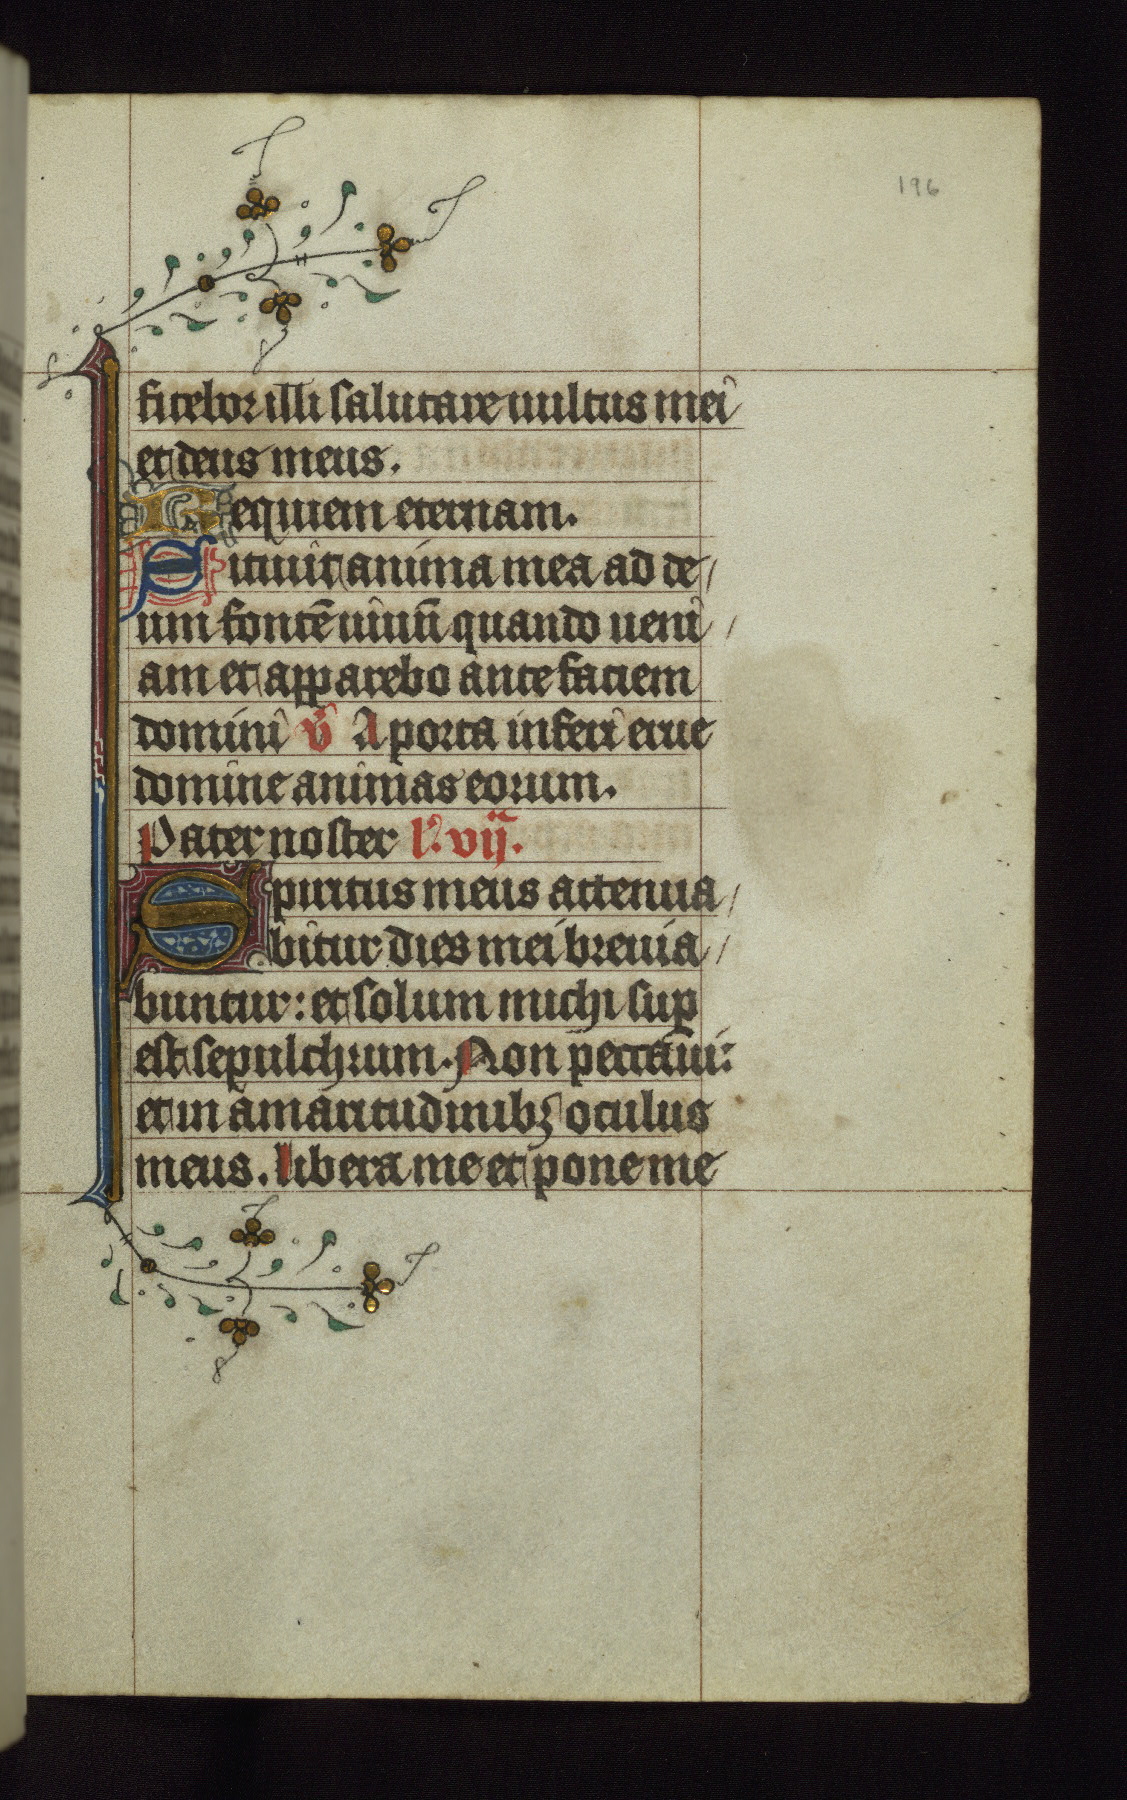 196
fitebor illi salutare uultus mei
et deus meus.
Requiem eternam.
Sitiuit anima mea ad de/
um fontē uiuū quando ueni/
am et apparebo ante faciem
domini v̄ A porta inferi erue
domine animas eorum.
Pater noster l'. vij.
Spiritus meus attenua/
bitur dies mei breuia/
buntur: et solum michi sup
est sepulchrum. Non peccaui:
et in amaritudinibꝫ oculus
meus. libera me et pone me